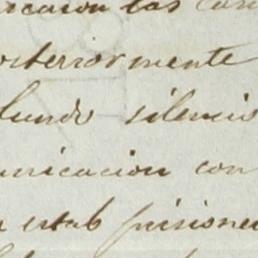 rcacion las con
osteriormente
lundo silencio
unicacion con
a estab prisione